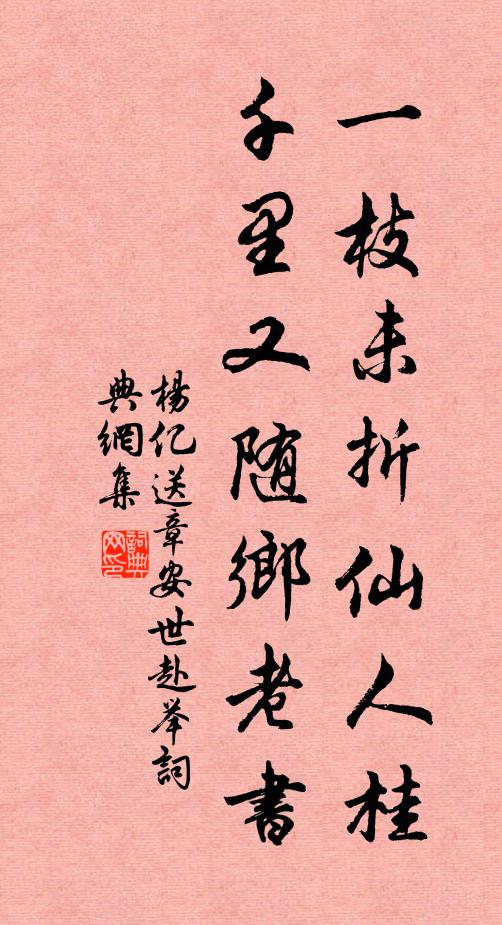 一枝未折仙人桂
千里又随鄉老書
楊亿送章安世赴举詞
典網集
詞典
网印